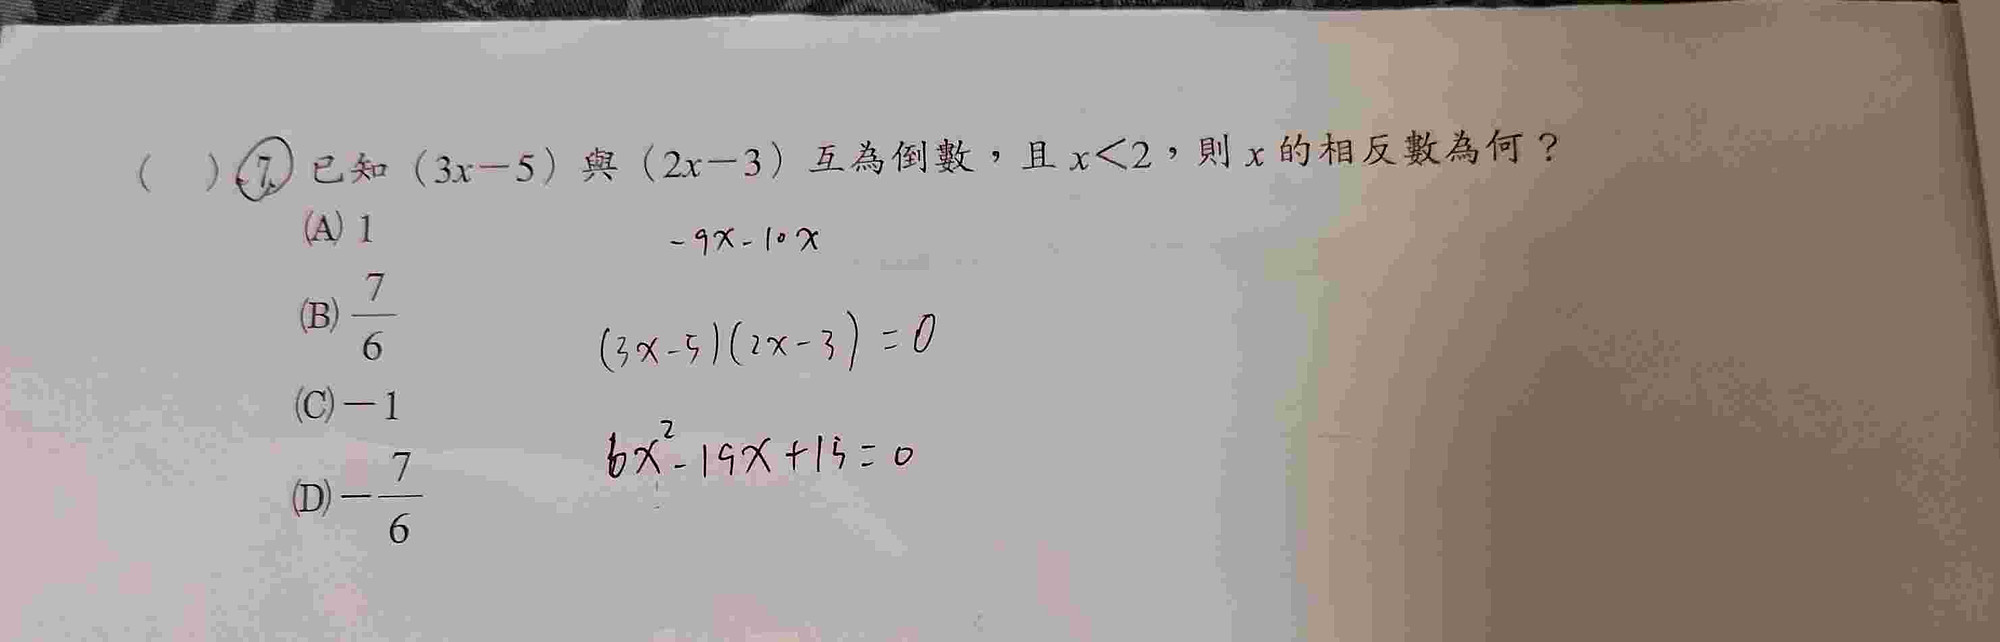 ( ) 7. 已知（3x－5）與（2x－3）互為倒數，且 x＜2，則 x 的相反數為何？
(A) 1
-9x-10x
(B) 7/6
(3x-5)(2x-3) = 0
(C) －1
6x²-19x+15=0
(D) －7/6